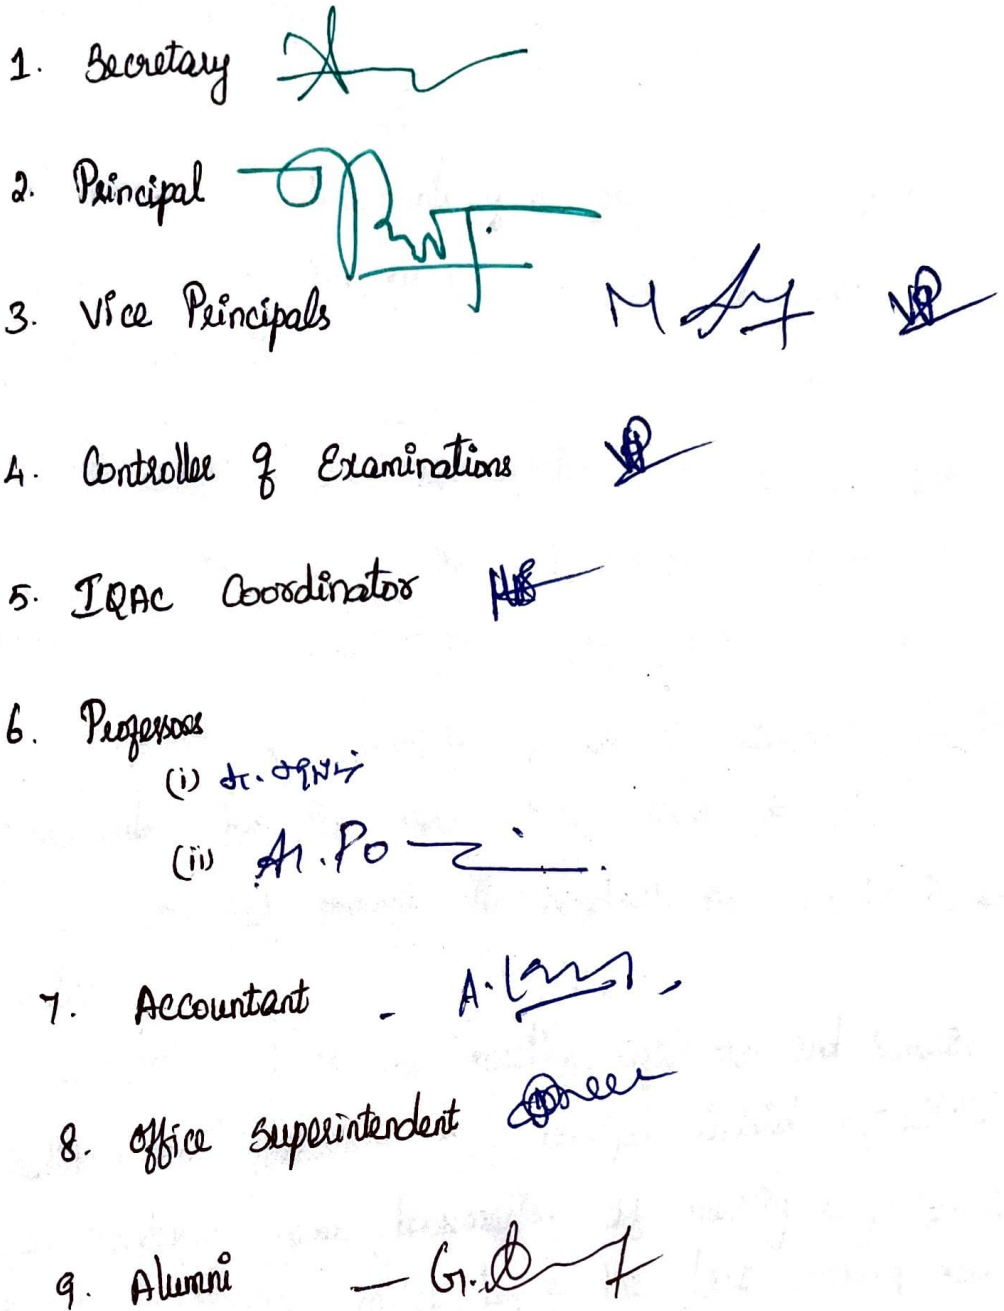 1. Secretary
2. Principal
3. Vice Principals
4. Controller of Examinations
5. IQAC Coordinator
6. Professors
(i)
(ii) Po
7. Accountant -
8. Office Superintendent
9. Alumni - G.